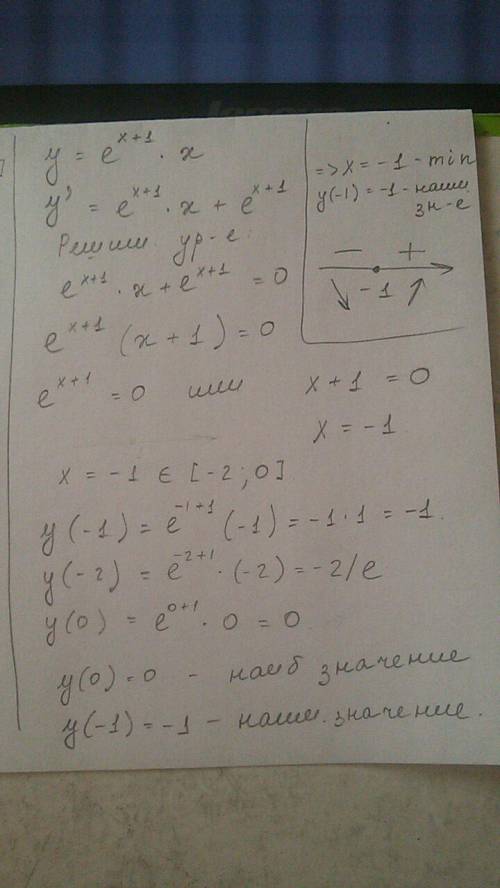 y = e^{x+1} · x
y' = e^{x+1} · x + e^{x+1}
Решим ур-е:
e^{x+1} · x + e^{x+1} = 0
e^{x+1} (x + 1) = 0
e^{x+1} = 0 или x + 1 = 0
x = -1
=> x = -1 - min
y(-1) = -1 - наим
зн-е
- +
-1
x = -1 ∈ [-2; 0]
y(-1) = e^{-1+1} (-1) = -1 · 1 = -1
y(-2) = e^{-2+1} · (-2) = -2/e
y(0) = e^{0+1} · 0 = 0
y(0) = 0 - наиб значение
y(-1) = -1 - наим. значение.